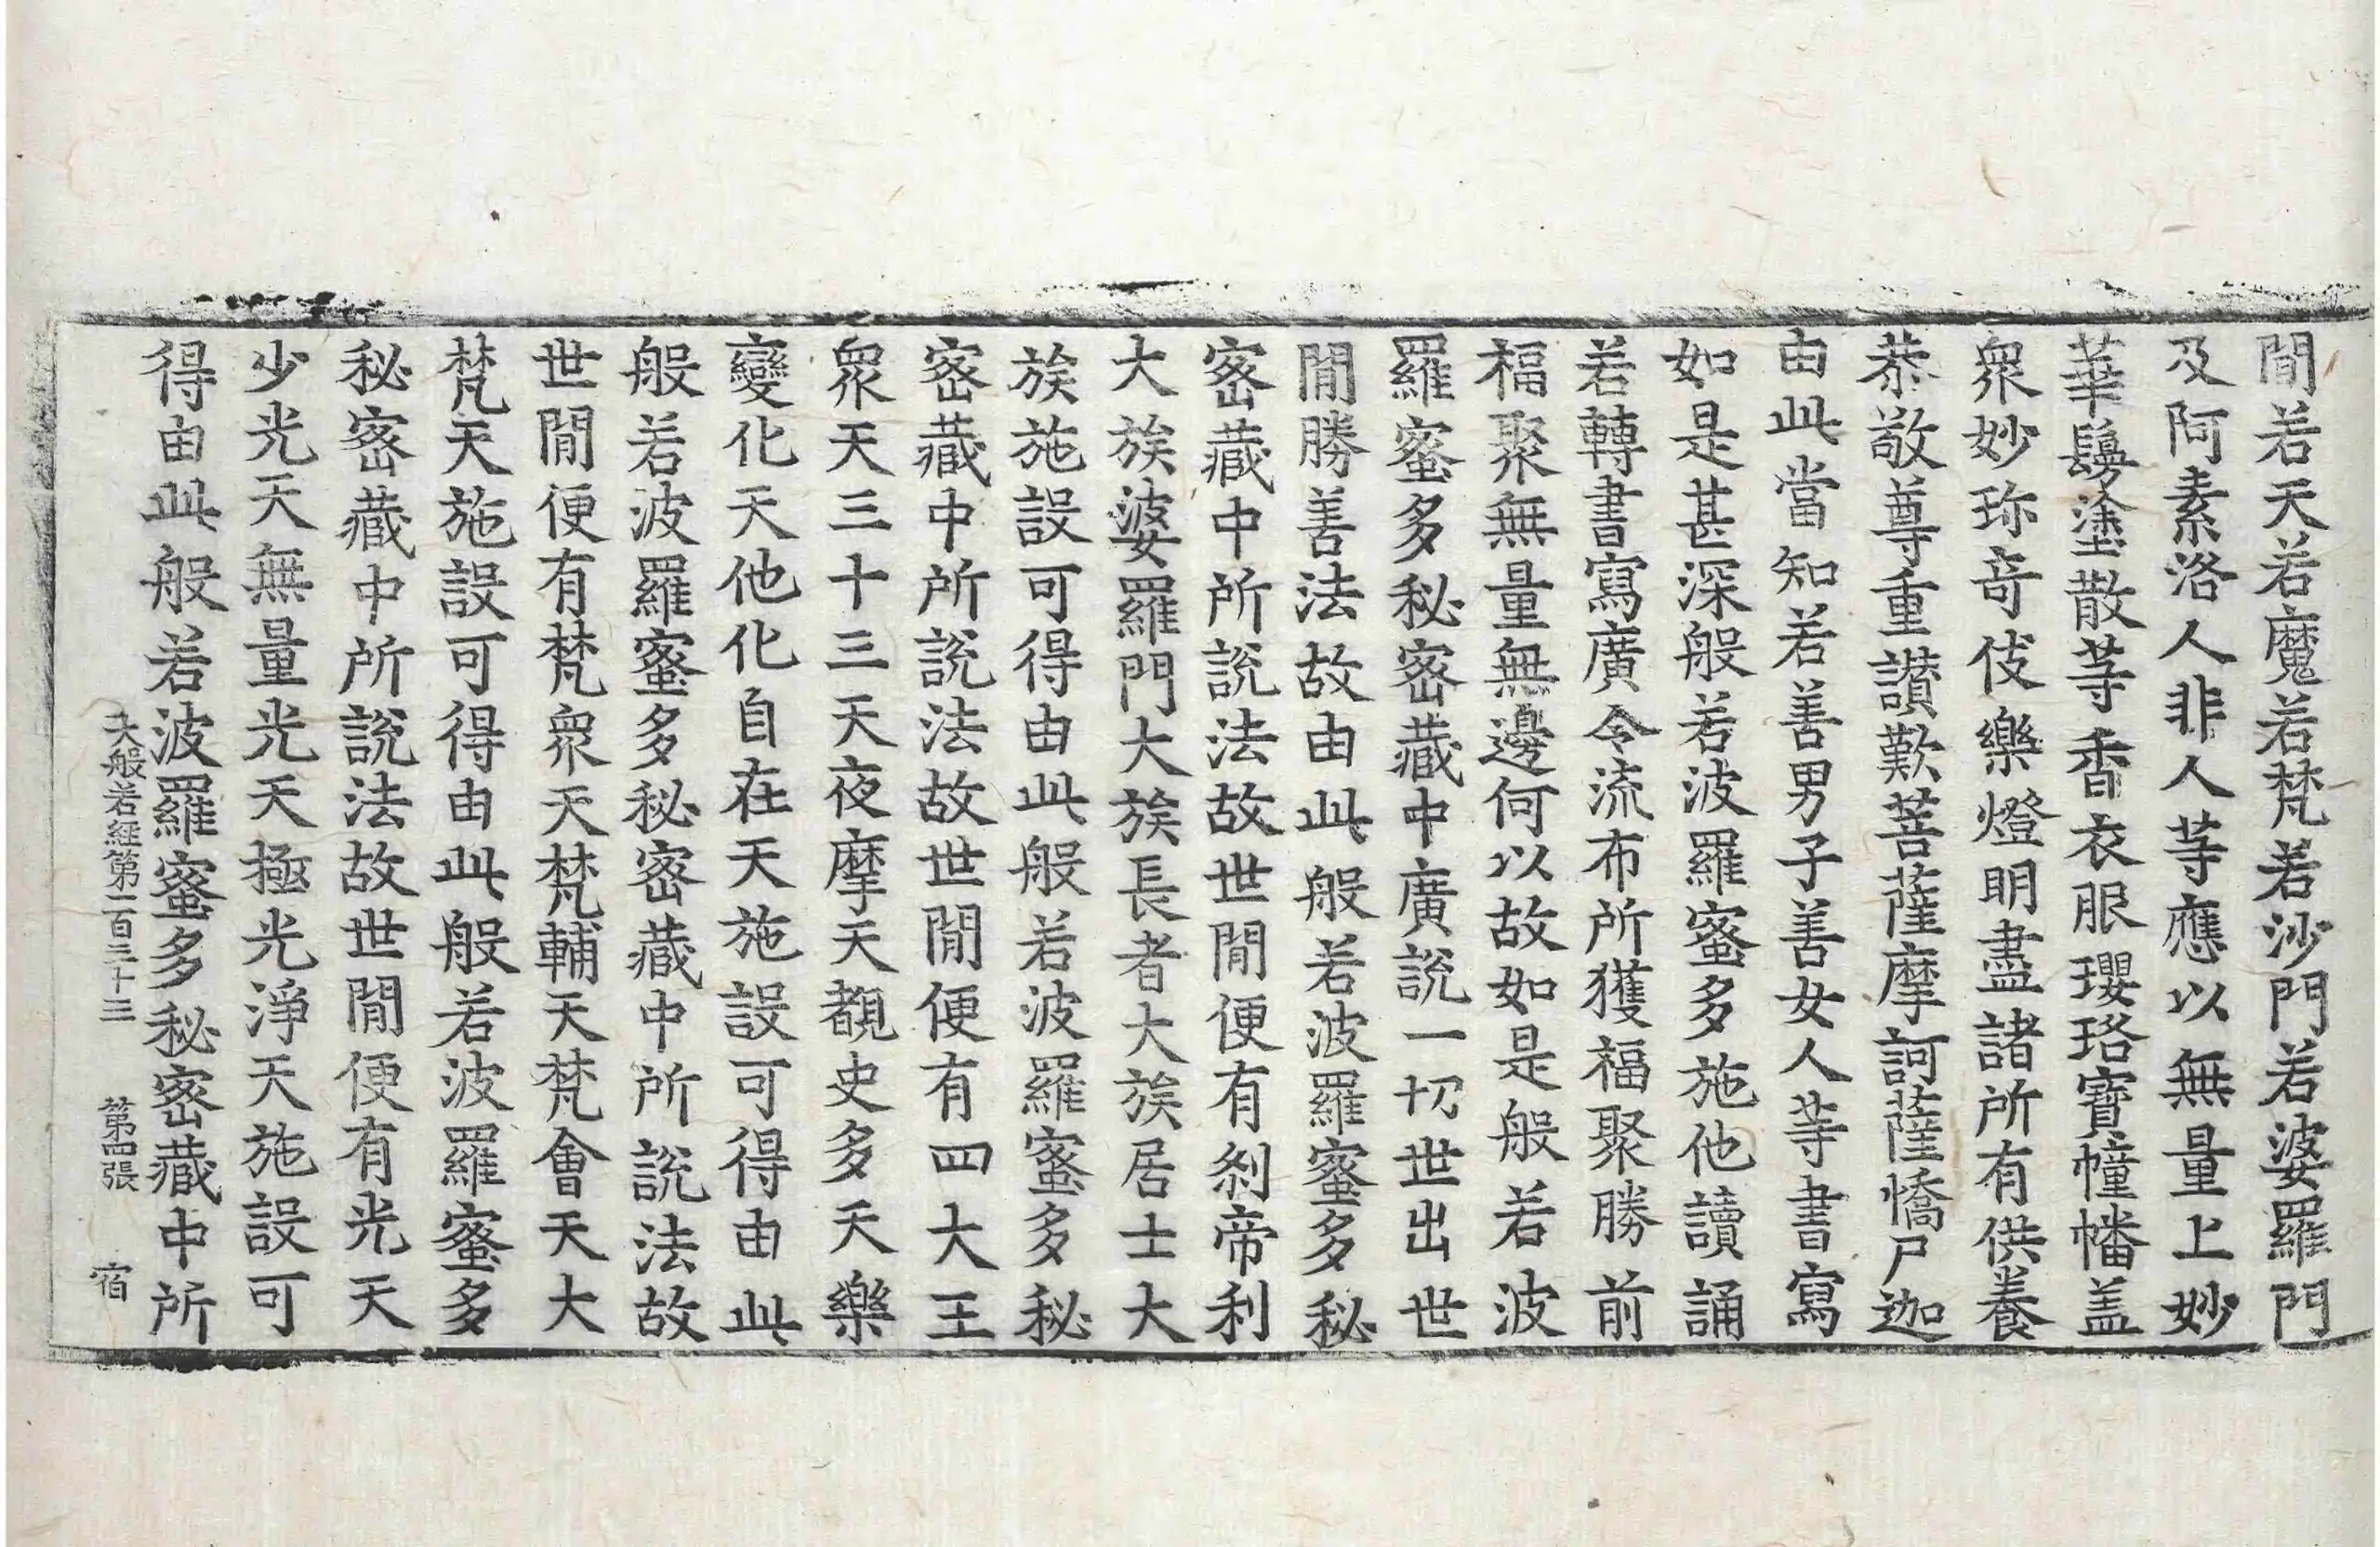 閒若天若魔若梵若沙門若婆羅門
及阿素洛人非人等應以無量上妙
華鬘塗散等香衣服瓔珞寶幢幡盖
衆妙珎奇伎樂燈明盡諸所有供養
恭敬尊重讃歎菩薩摩訶薩憍尸迦
由此當知若善男子善女人等書寫
如是甚深般若波羅蜜多施他讀誦
若轉書寫廣令流布所獲福聚勝前
福聚無量無邊何以故如是般若波
羅蜜多秘密藏中廣說一切世出世
閒勝善法故由此般若波羅蜜多秘
密藏中所說法故世閒便有剎帝利
大族婆羅門大族長者大族居士大
族施設可得由此般若波羅蜜多秘
密藏中所說法故世閒便有四大王
衆天三十三天夜摩天覩史多天樂
變化天他化自在天施設可得由此
般若波羅蜜多秘密藏中所說法故
世閒便有梵衆天梵輔天梵會天大
梵天施設可得由此般若波羅蜜多
秘密藏中所說法故世閒便有光天
少光天無量光天極光淨天施設可
得由此般若波羅蜜多秘密藏中所
大般若經第一百三十三 第四張 宿